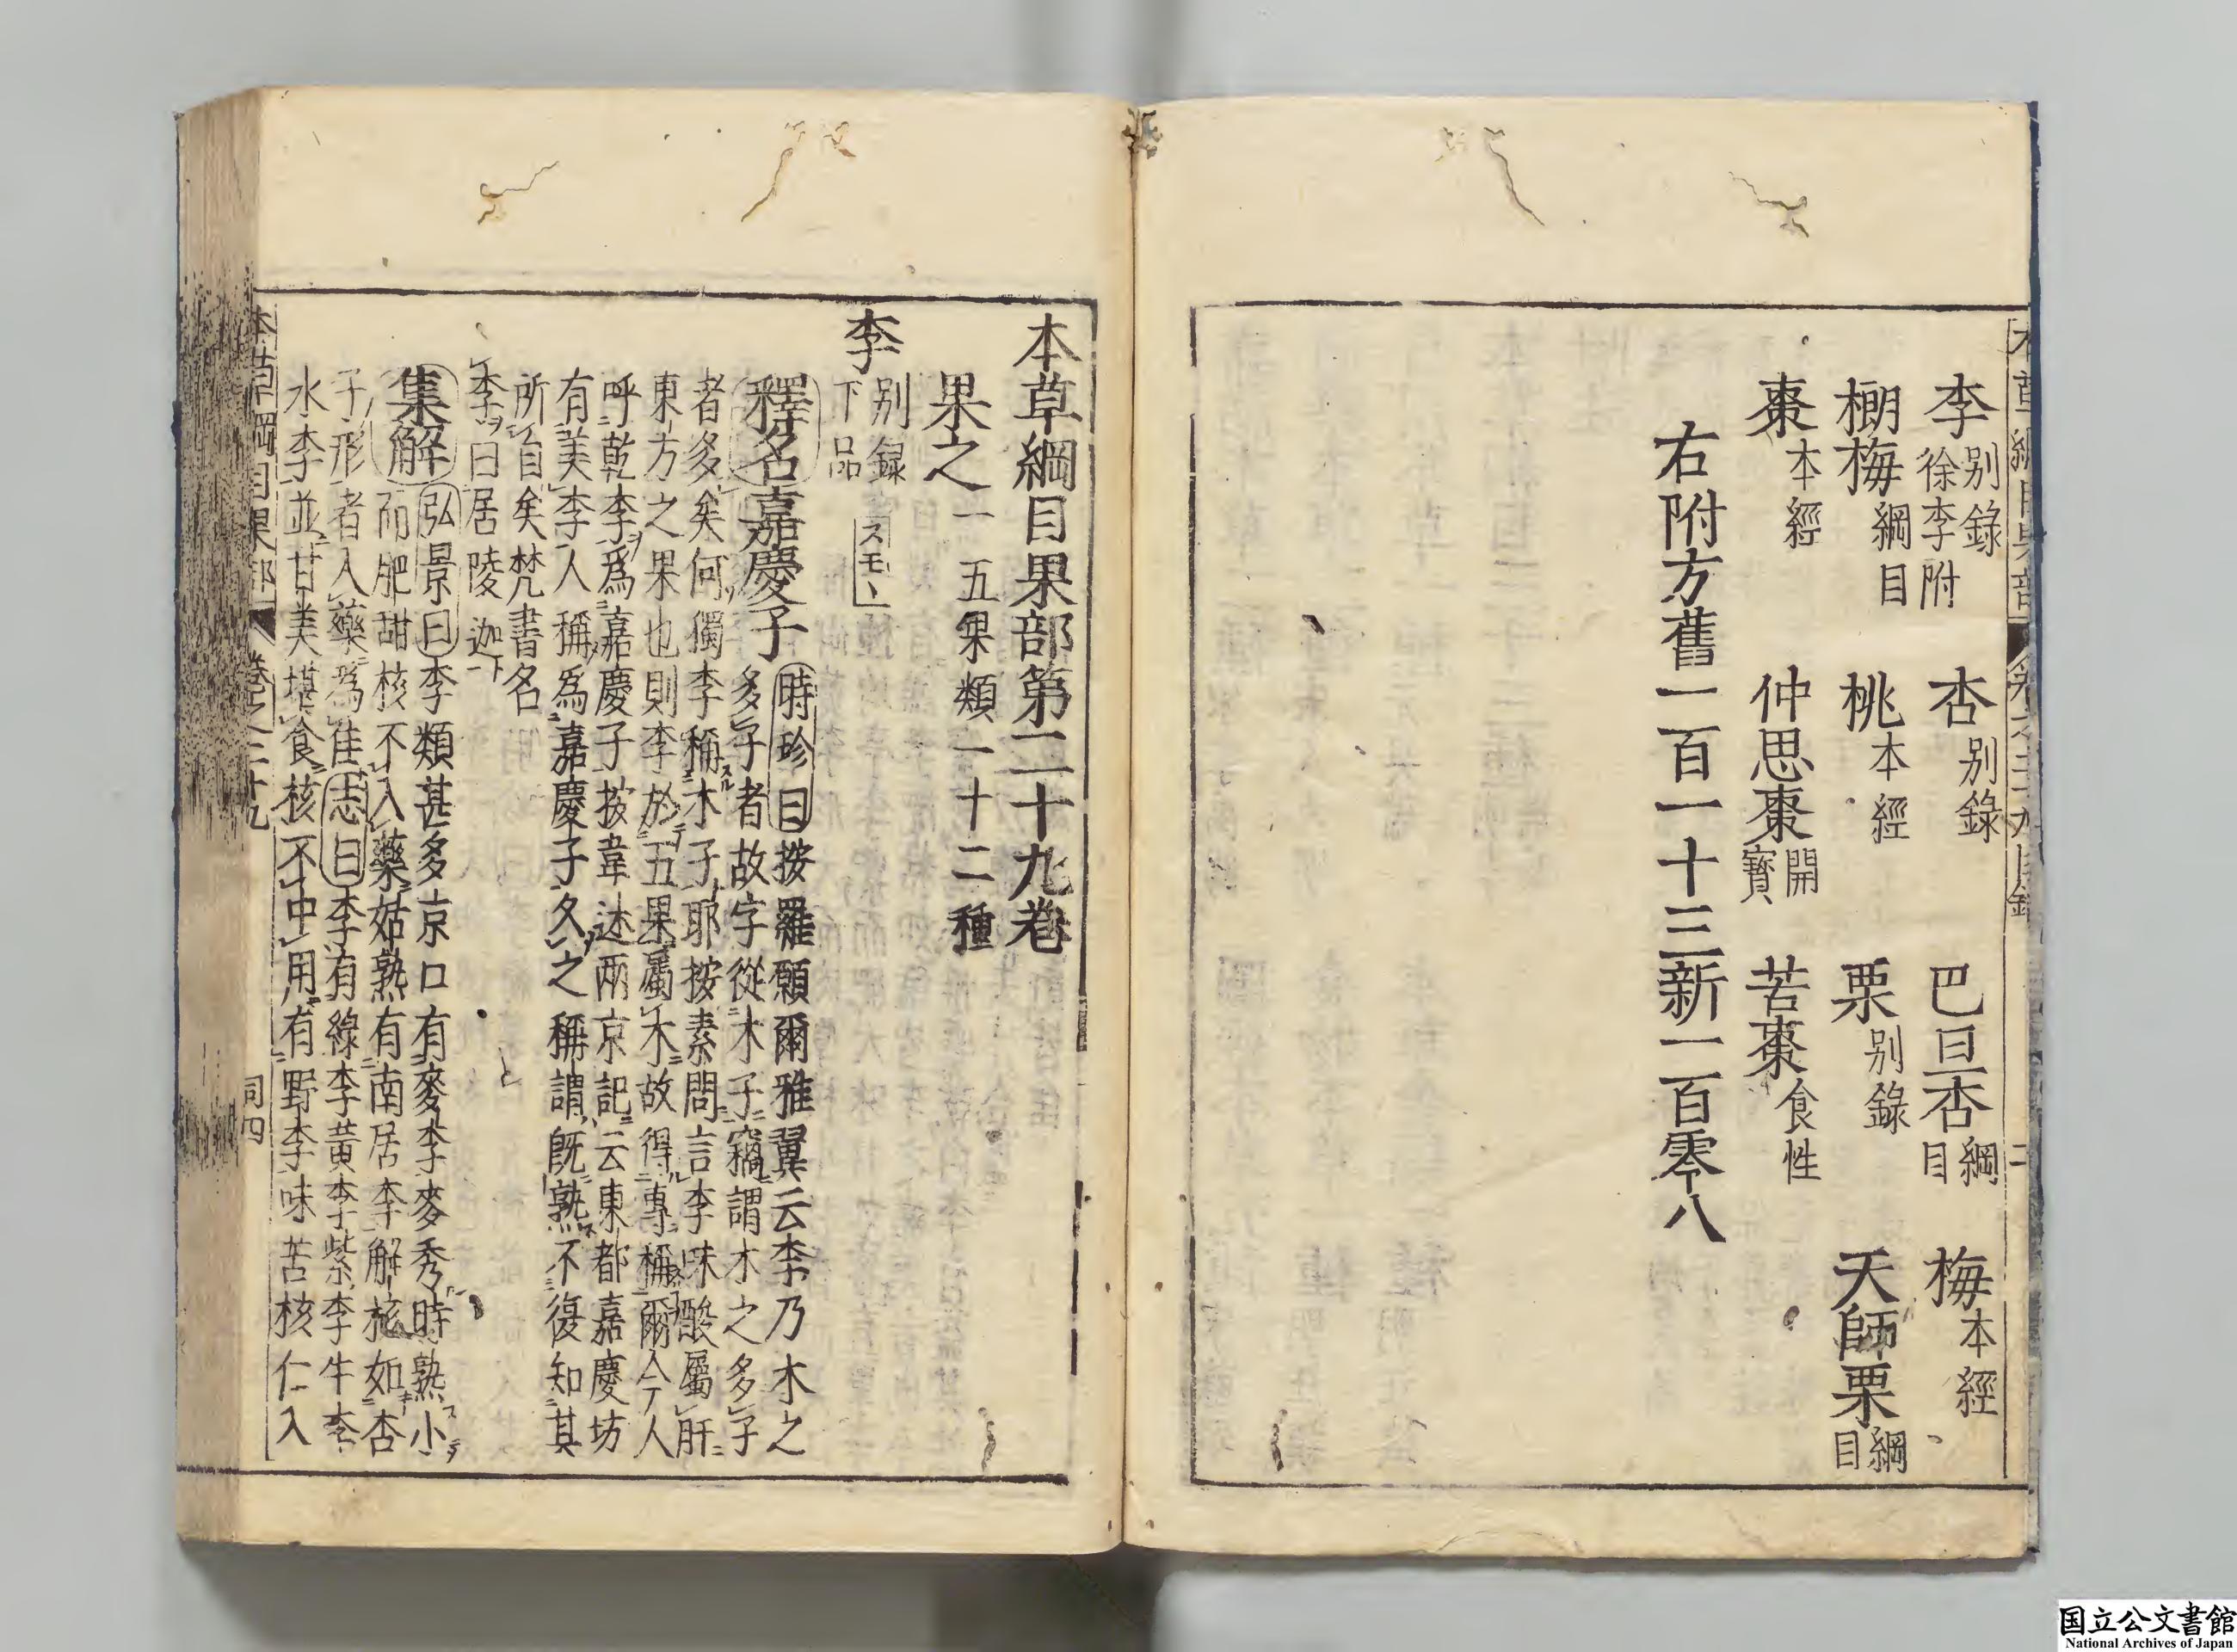 李 別錄 徐李附 杏 別錄 巴旦杏 綱目 梅 本經
榔梅 綱目 桃 本經 栗 別錄 天師栗 綱目
棗 本經 仲思棗 開寶 苦棗 食性
右附方舊一百一十三新一百零八
本草綱目果部第二十九卷
果之一 五果類一十二種
李 別録下品 スモヽ
釋名 嘉慶子 時珍曰按羅願爾雅翼云李乃木之
多子者故字從木子竊謂木之多子
者多矣何獨李稱木子耶按素問言李味酸屬肝
東方之果也則李於五果屬木故得專稱爾今人
呼乾李爲嘉慶子按韋述兩京記云東都嘉慶坊
有美李人稱爲嘉慶子久之稱謂既熟不復知其
所自矣梵書名
李曰居陵迦
集解 弘景曰李類甚多京口有麥李麥秀時熟小
而肥甜核不入藥姑熟有南居李解核如杏
子形者入藥爲佳志曰李有綠李黄李紫李牛李
水李並甘美堪食核不中用有野李味苦核仁入
本草綱目果部 卷之二十九
同四
国立公文書館
National Archives of Japan